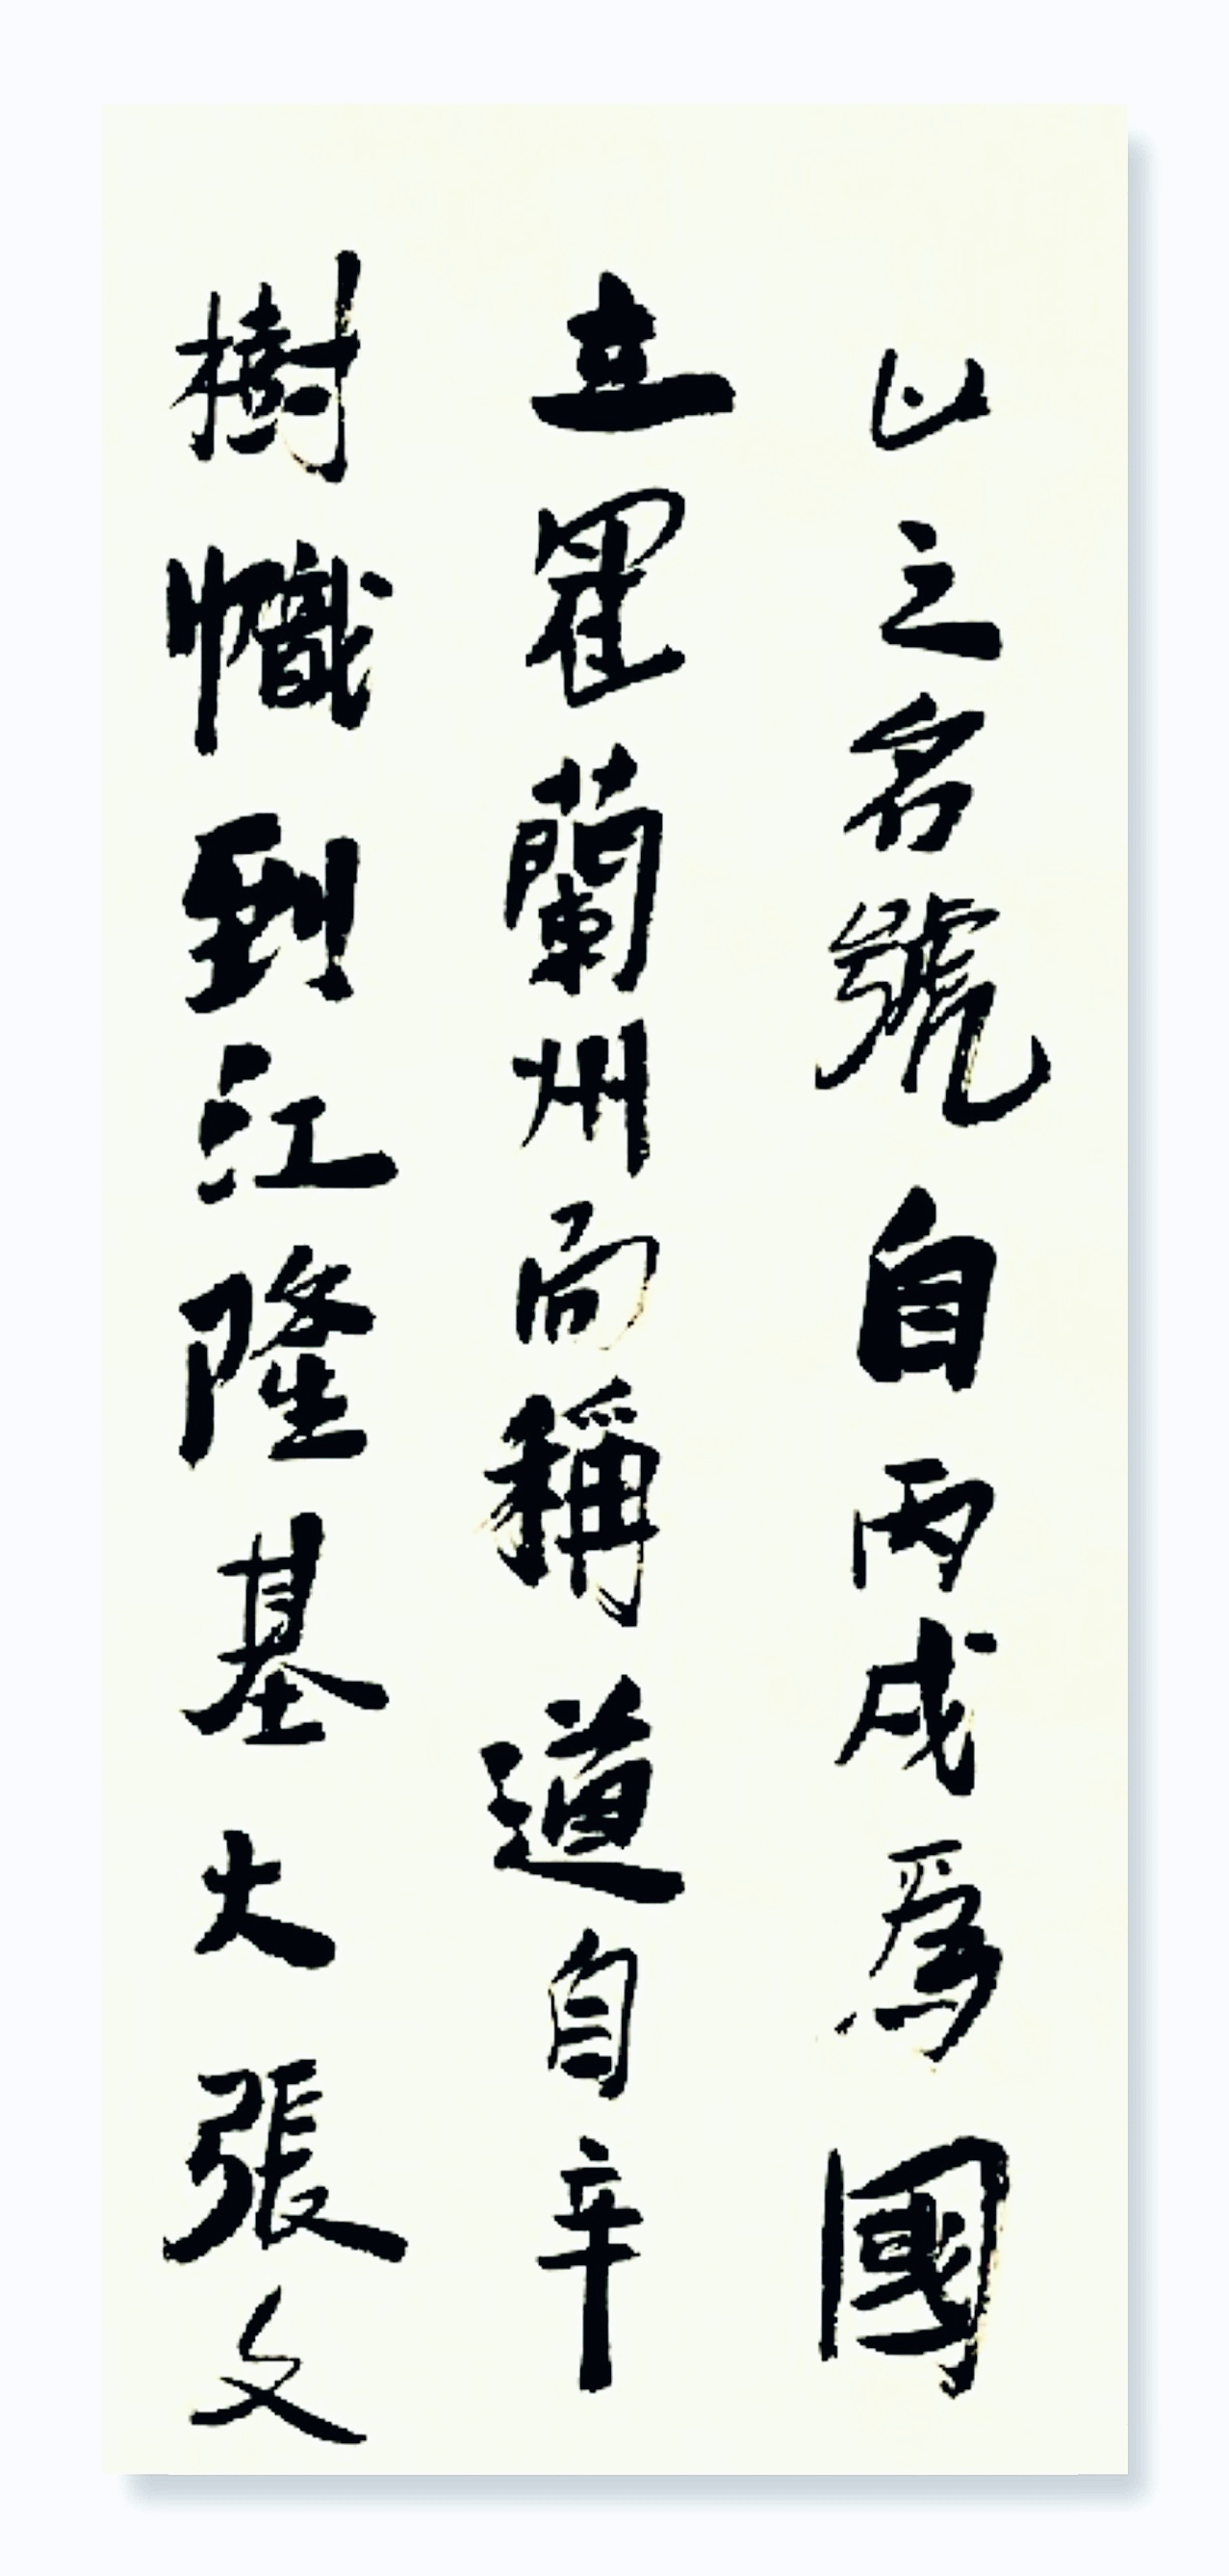 山之名號自丙戌爲國
立蘭州而稱道自辛
樹幟到江隆基大張文